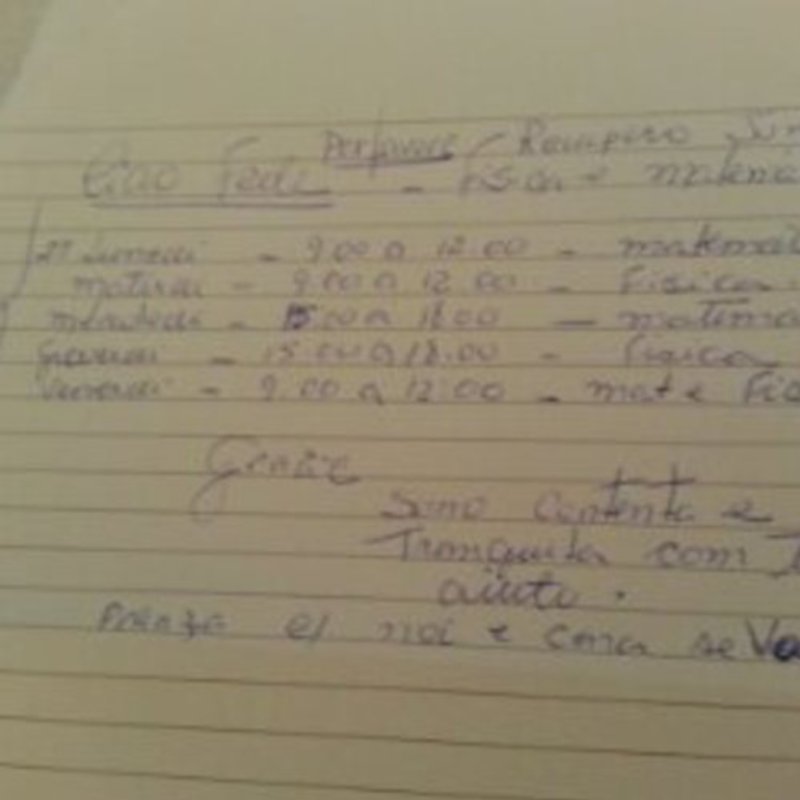 Per favore / Recupero
Ciao Fede - Fisica e matema
lunedi - 9.00 a 12.00 - matemat
martedi - 9.00 a 12.00 - Fisica
mercoledi - 15.00 a 18.00 - matema
giovedi - 15.00 a 18.00 - fisica
venerdi - 9.00 a 12.00 - mat e Fis
Grazie
Sono contenta e
Tranquila com
aiuto.
Pranzo noi e cena se Vo